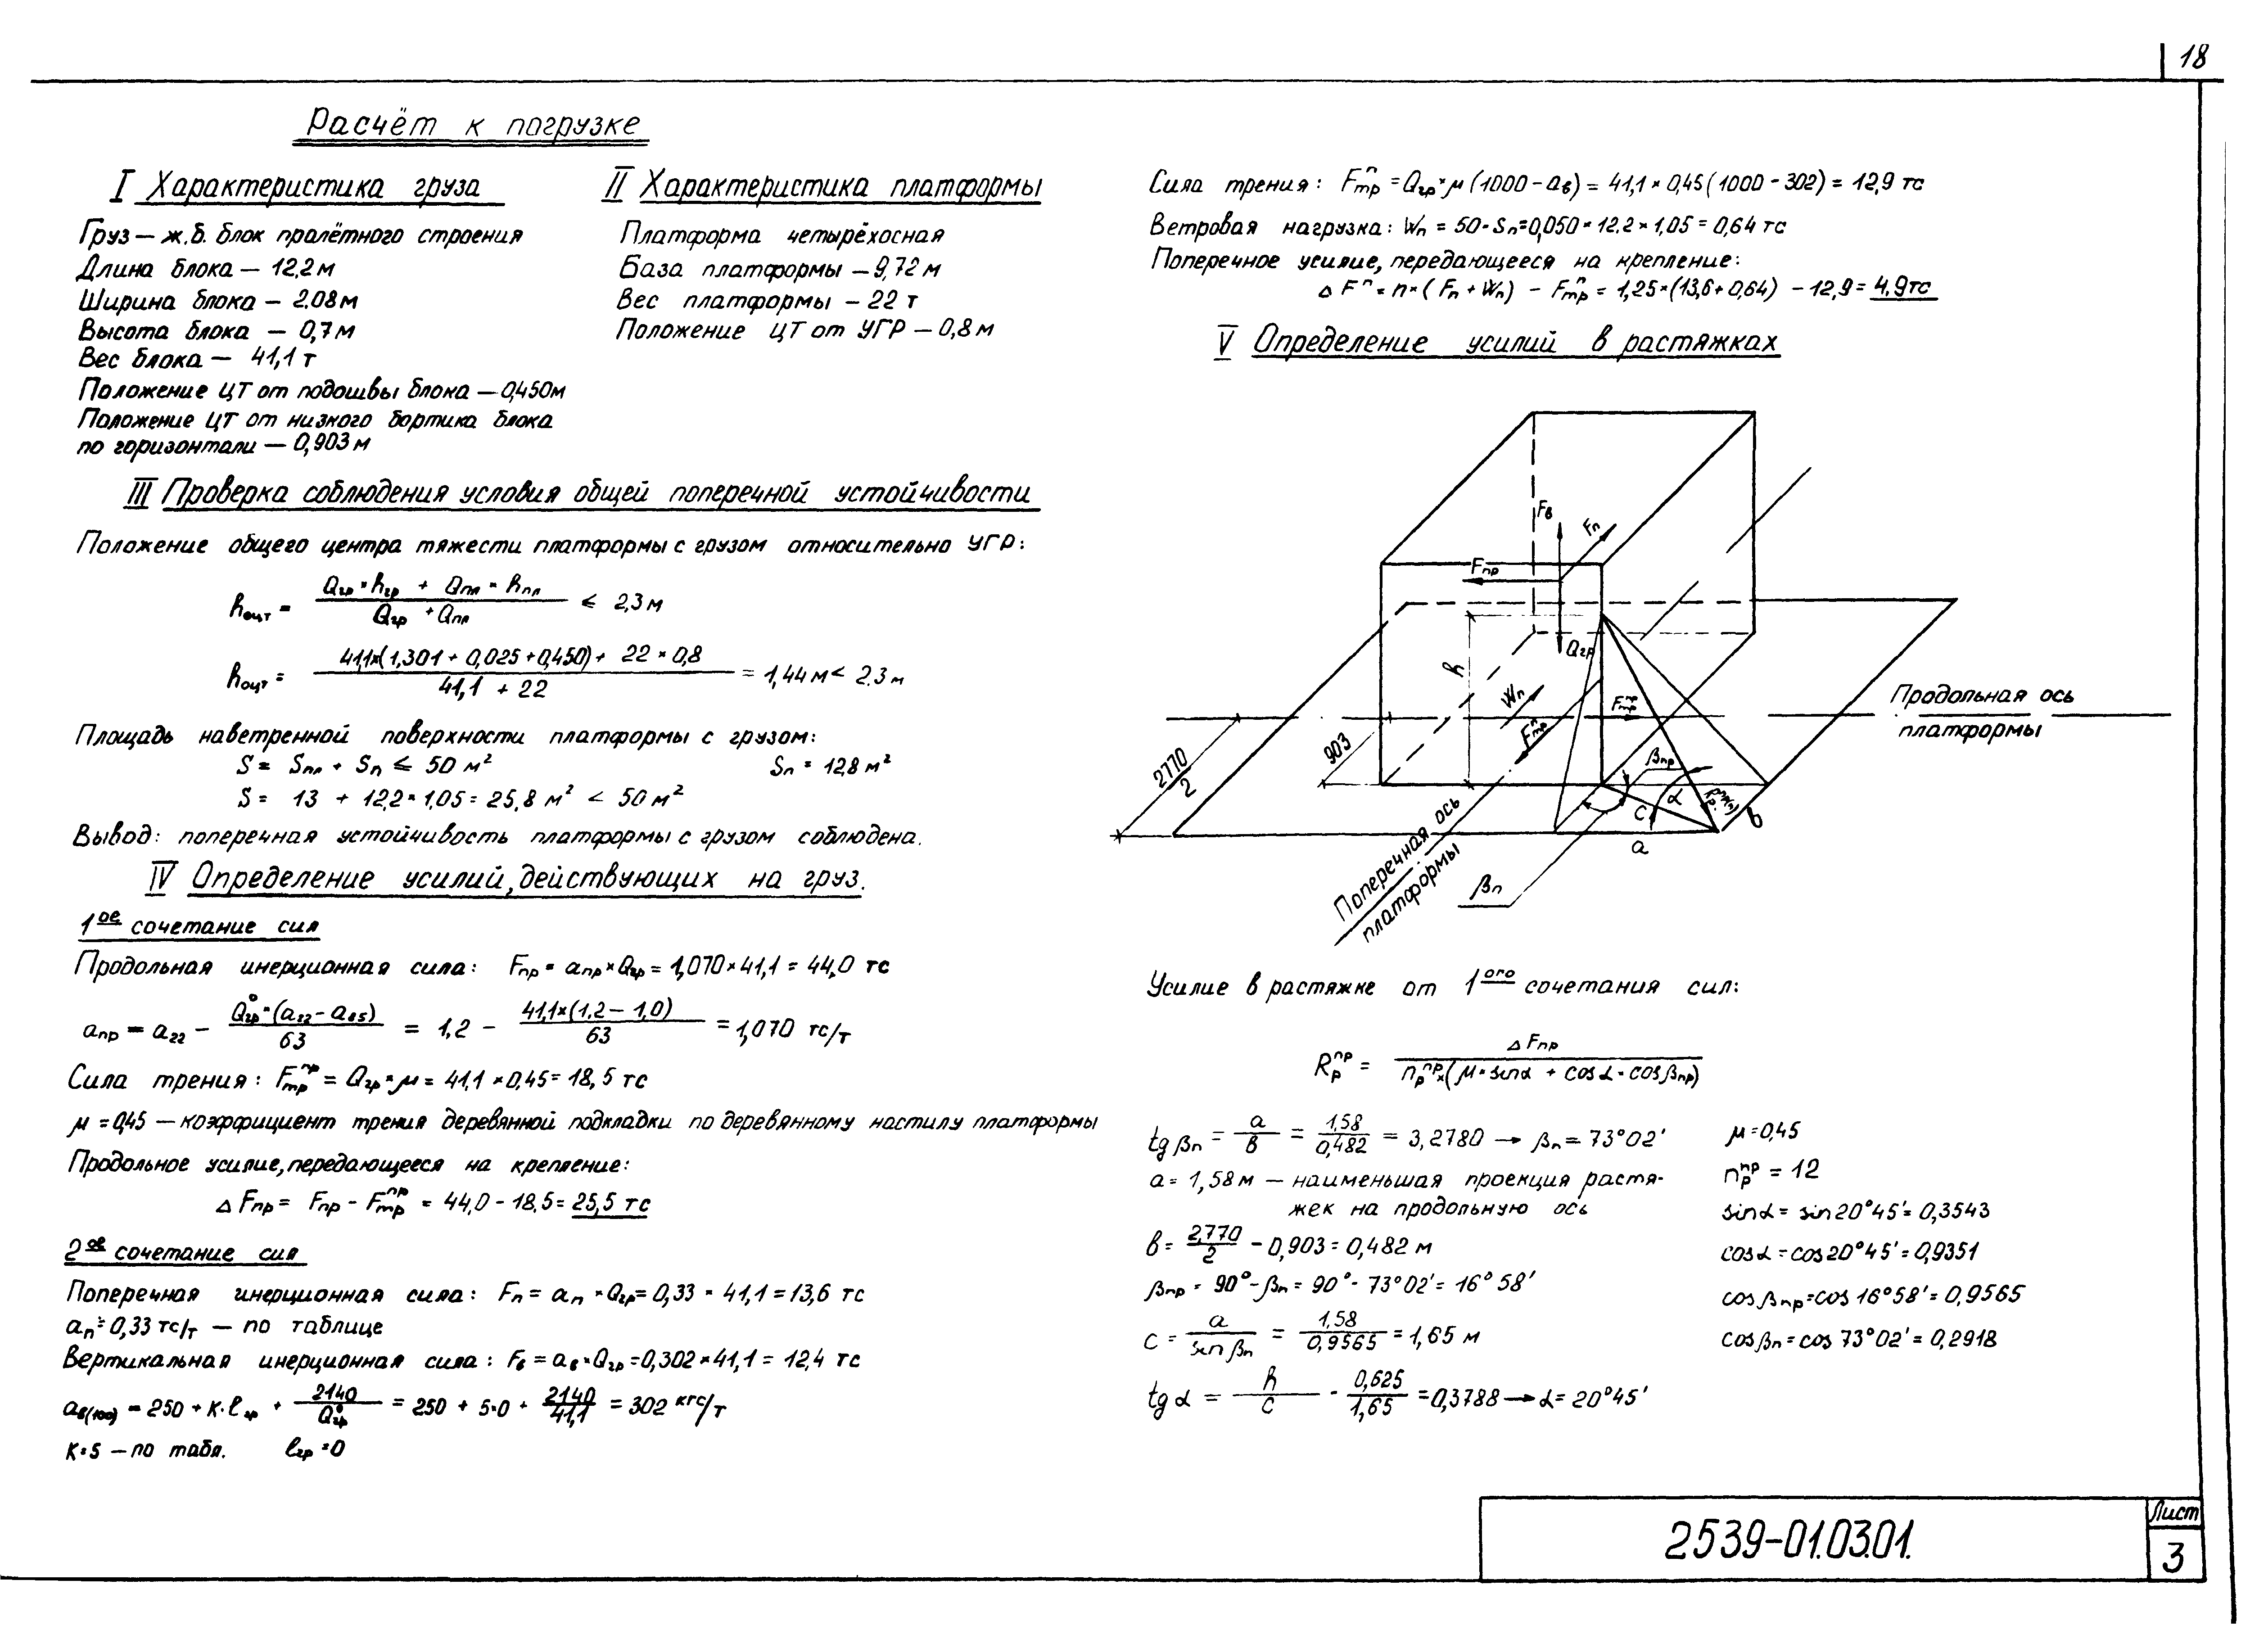 18
Расчёт к погрузке
I Характеристика груза
Груз — ж.б. блок пролётного строения
Длина блока — 12,2 м
Ширина блока — 2.08 м
Высота блока — 0,7 м
Вес блока — 41,1 т
Положение ЦТ от подошвы блока — 0,450 м
Положение ЦТ от низкого бортика блока
по горизонтали — 0,903 м
II Характеристика платформы
Платформа четырёхосная
База платформы — 9,72 м
Вес платформы — 22 т
Положение ЦТ от УГР — 0,8 м
III Проверка соблюдения условия общей поперечной устойчивости
Положение общего центра тяжести платформы с грузом относительно УГР:
hоцт = (Qгр × hгр + Qпл × hпл) / (Qгр + Qпл) ≤ 2,3 м
hоцт = (41,1×(1,301 + 0,025 + 0,450) + 22 × 0,8) / (41,1 + 22) = 1,44 м < 2.3 м
Площадь наветренной поверхности платформы с грузом:
S = Sпл + Sп ≤ 50 м² Sп = 12,8 м²
S = 13 + 12,2 × 1,05 = 25,8 м² < 50 м²
Вывод: поперечная устойчивость платформы с грузом соблюдена.
IV Определение усилий, действующих на груз.
1ое сочетание сил
Продольная инерционная сила: Fпр = aпр × Qгр = 1,070 × 41,1 = 44,0 тс
aпр = a22 − Q°гр × (a22 − a85) / 63 = 1,2 − 41,1×(1,2 − 1,0) / 63 = 1,070 тс/т
Сила трения: Fтр^пр = Qгр × μ = 41,1 × 0,45 = 18,5 тс
μ = 0,45 — коэффициент трения деревянной подкладки по деревянному настилу платформы
Продольное усилие, передающееся на крепление:
ΔFпр = Fпр − Fтр^пр = 44,0 − 18,5 = 25,5 тс
2ое сочетание сил
Поперечная инерционная сила: Fп = aп × Qгр = 0,33 × 41,1 = 13,6 тс
aп = 0,33 тс/т — по таблице
Вертикальная инерционная сила: Fв = aв × Qгр = 0,302 × 41,1 = 12,4 тс
aв(100) = 250 + к·lгр + 2140 / Q°гр = 250 + 5·0 + 2140 / 41,1 = 302 кгс/т
к = 5 — по табл. lгр = 0
Сила трения: Fтр^п = Qгр × μ (1000 − aв) = 41,1 × 0,45 (1000 − 302) = 12,9 тс
Ветровая нагрузка: Wп = 50 · Sп = 0,050 × 12.2 × 1,05 = 0,64 тс
Поперечное усилие, передающееся на крепление:
ΔF^п = n × (Fп + Wп) − Fтр^п = 1,25 × (13,6 + 0,64) − 12,9 = 4,9 тс
V Определение усилий в растяжках
Fв
Fп
Fпр
Qгр
h
Wп
Fтр^п
Fтр^пр
Продольная ось
платформы
903
2770/2
βпр
α
c
в
a
βп
Поперечная ось
платформы
Усилие в растяжке от 1ого сочетания сил:
Rр^пр = ΔFпр / (nр^пр × (μ · sinα + cosα · cosβпр))
tg βп = a / в = 1,58 / 0,482 = 3,2780 → βп = 73°02'
a = 1,58 м — наименьшая проекция растя-
жек на продольную ось
в = 2,770 / 2 − 0,903 = 0,482 м
βпр = 90° − βп = 90° − 73°02' = 16°58'
c = a / sin βп = 1,58 / 0,9565 = 1,65 м
tg α = h / c = 0,625 / 1,65 = 0,3788 → α = 20°45'
μ = 0,45
nр^пр = 12
sinα = sin 20°45' = 0,3543
cosα = cos 20°45' = 0,9351
cosβпр = cos 16°58' = 0,9565
cosβп = cos 73°02' = 0,2918
2539-01.03.01.
Лист
3